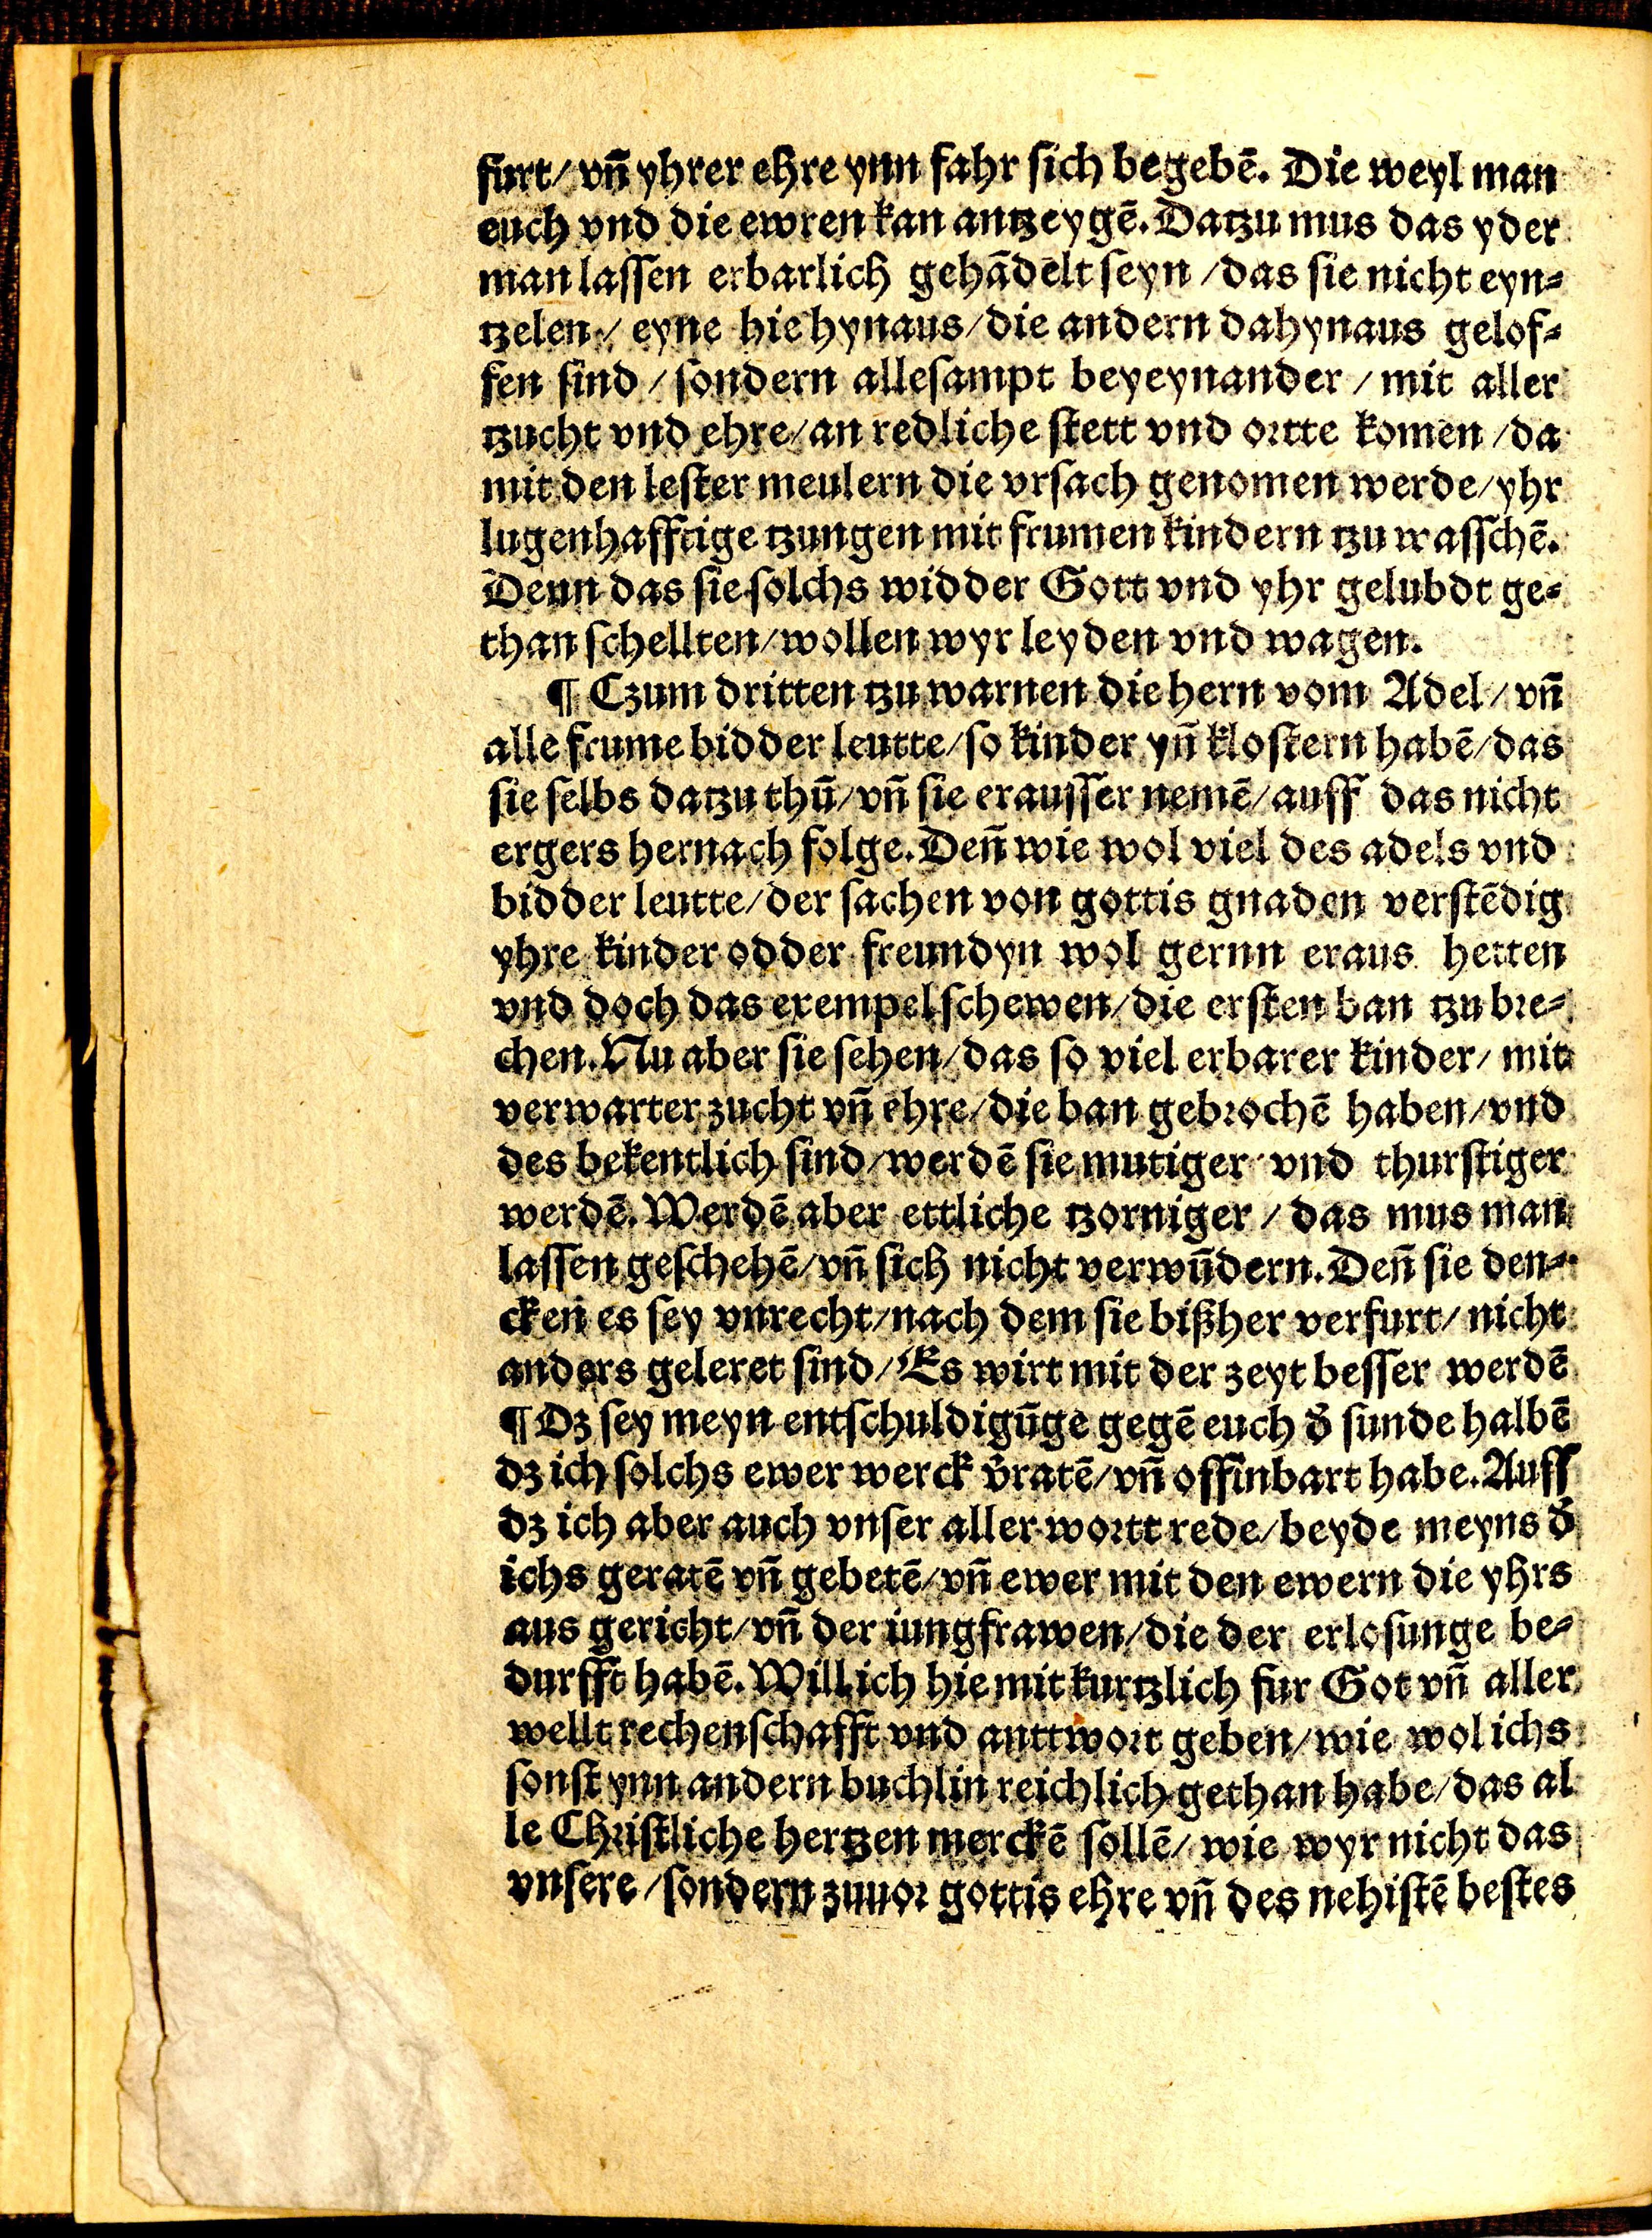 furt/ vñ yhrer ehre ynn fahr sich begebē. Die weyl man
euch vnd die ewren kan antzeygē. Datzu mus das yder
man lassen erbarlich gehādelt seyn /das sie nicht eyn⸗
tzelen/ eyne hie hynaus/die andern dahynaus gelof⸗
fen sind /sondern allesampt beyeynander / mit aller
tzucht vnd ehre/an redliche stett vnd ortte komen /da
mit den lester meulern die vrsach genomen werde/yhr
lugenhafftige tzungen mit frumen kindern tzu wasschē.
Denn das sie solchs widder Gott vnd yhr gelubdt ge⸗
than schellten/wollen wyr leyden vnd wagen.
¶ Czum dritten tzu warnen die hern vom Adel/ vñ
alle frume bidder leutte/so kinder yñ klostern habē/das
sie selbs datzu thū/vñ sie erausser nemē/auff das nicht
ergers hernach folge. Deñ wie wol viel des adels vnd
bidder leutte/der sachen von gottis gnaden verstēdig
yhre kinder odder freundyn wol gernn eraus hetten
vnd doch das exempel schewen/die ersten ban tzu bre⸗
chen. Nu aber sie sehen/das so viel erbarer kinder/ mit
verwarter zucht vñ ehre/die ban gebrochē haben/vnd
des bekentlich sind/werdē sie mutiger vnd thurstiger
werdē. Werdē aber ettliche tzorniger / das mus man
lassen geschehē/vñ sich nicht verwūdern. Deñ sie den⸗
cken es sey vnrecht/nach dem sie bißher verfurt/ nicht
anders geleret sind/Es wirt mit der zeyt besser werdē
¶ Dz sey meyn entschuldigūge gegē euch d̄ sunde halbē
dz ich solchs ewer werck v̄ratē/vñ offinbart habe. Auff
dz ich aber auch vnser aller wortt rede/beyde meyns d̄
ichs geratē vñ gebetē/vñ ewer mit den ewern die yhrs
aus gericht/vñ der iungfrawen/die der erlosunge be⸗
durfft habē. Will ich hie mit kurtzlich fur Got vñ aller
wellt rechenschafft vnd anttwort geben/wie wol ichs
sonst ynn andern buchlin reichlich gethan habe/das al
le Christliche hertzen merckē sollē/ wie wyr nicht das
vnsere /sondern zuuor gottis ehre vñ des nehistē bestes